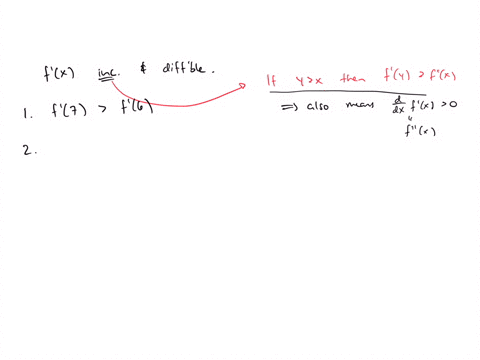 f'(x) inc. & diff'ble.
If y>x then f'(y) > f'(x)
1. f'(7) > f'(6)
⇒ also means d/dx f'(x) > 0
"
f''(x)
2.